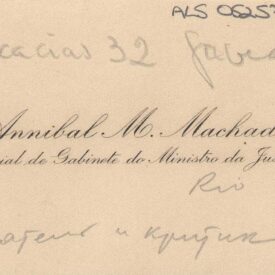 ALS 06257
cacias 32 Gavea
Annibal M. Machad
ial de Gabinete do Ministro da Ju
Rio
атель и критик